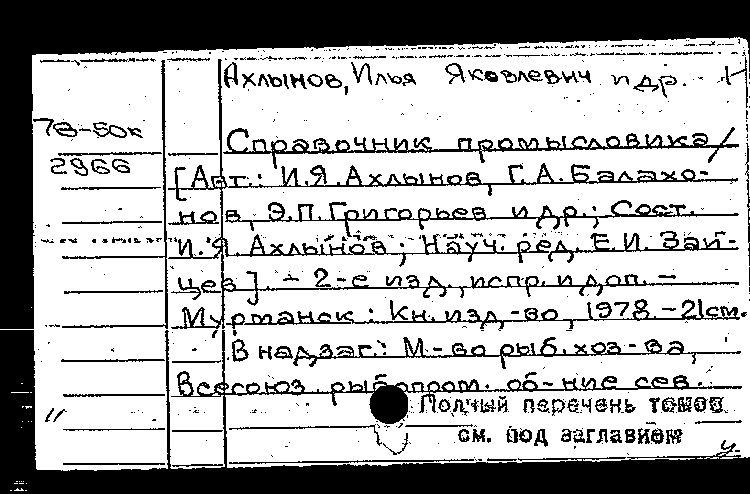 Ахлынов, Илья Яковлевич и др.
78-50к
2966
Справочник промысловика/
[Авт.: И.Я. Ахлынов, Г.А. Балахо-
нов, Э.П. Григорьев и др.; Сост.
И.Я. Ахлынов; Науч. ред. Е.И. Зай-
цев]. - 2-е изд., испр. и доп. -
Мурманск: Кн. изд-во, 1978. - 21см.
В надзаг.: М-во рыб. хоз-ва,
Всесоюз. рыбопром. об-ние сев.
Полный перечень томов
см. под заглавием